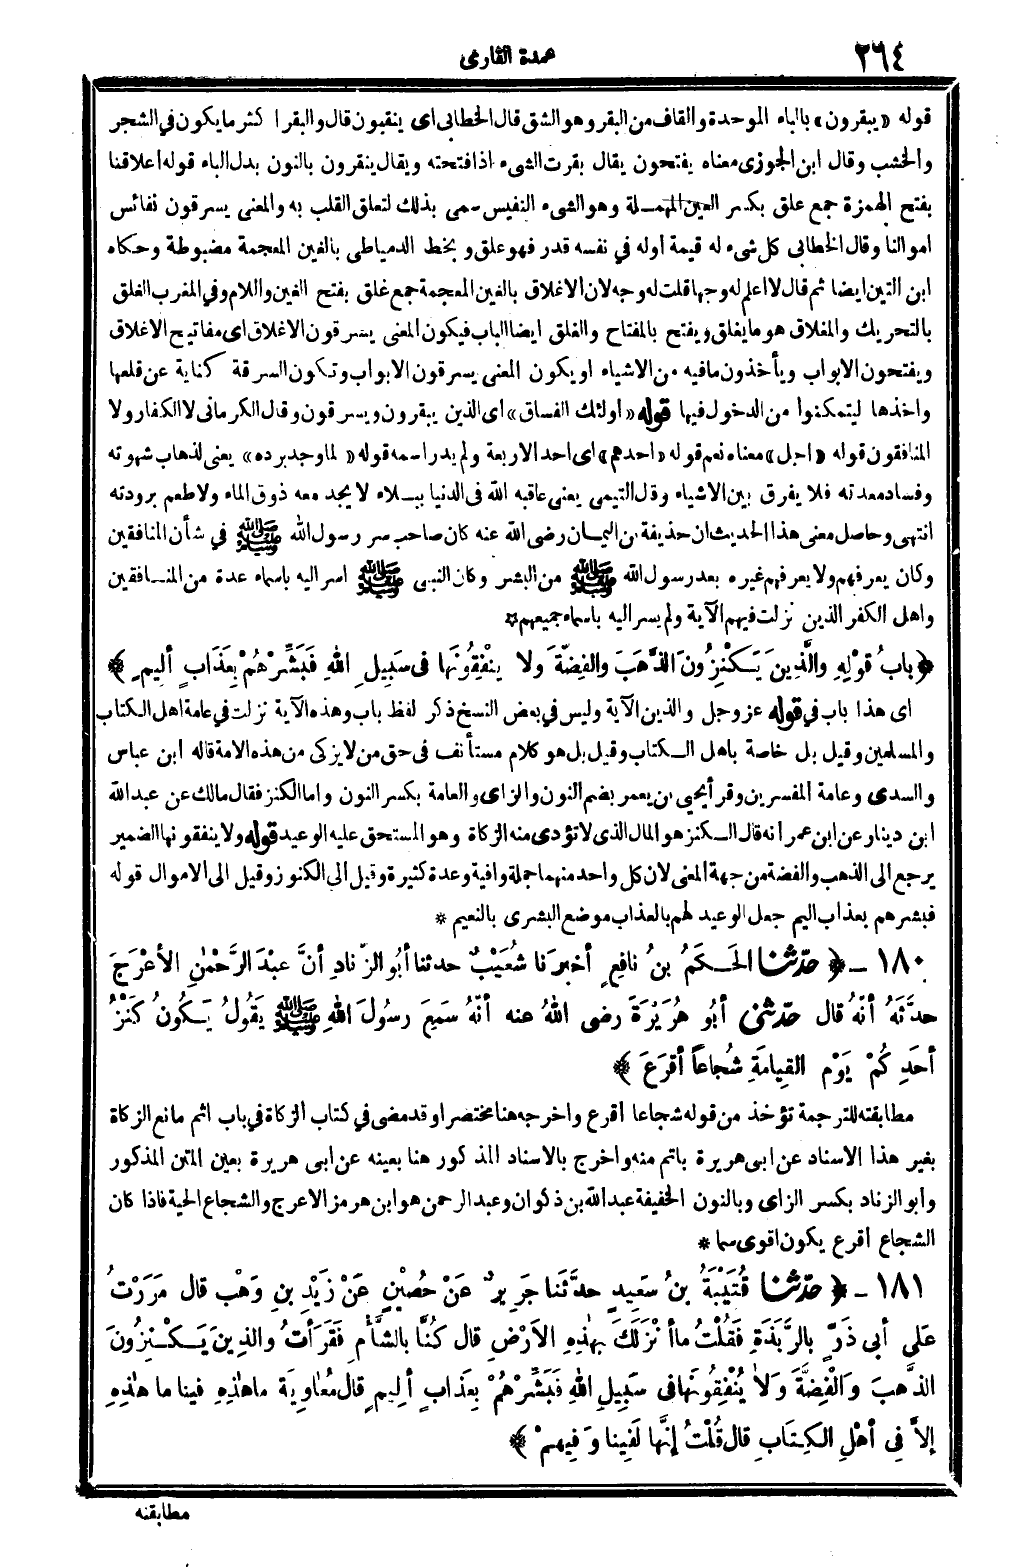 ٢٦٤
عمدة القارى
قوله «يبقرون» بالباء الموحدة والقاف من البقر وهو الشق قال الخطابى اى ينقبون قال والبقر اكثر ما يكون فى الشجر
والخشب وقال ابن الجوزى معناه يفتحون يقال بقرت الشىء اذا فتحته ويقال ينقرون بالنون بدل الباء قوله اعلاقنا
بفتح الهمزة جمع علق بكسر العين المهملة وهو الشىء النفيس سمى بذلك لتعلق القلب به والمعنى يسرقون نفائس
اموالنا وقال الخطابى كل شىء له قيمة اوله في نفسه قدر فهو علق و بخط الدمياطى بالغين المعجمة مضبوطة وحكاه
ابن التين ايضا ثم قال لا اعلم له وجها قلت له وجه لان الاغلاق بالغين المعجمة جمع غلق بفتح الغين واللام وفى المغرب الغلق
بالتحريك والمغلاق هو ما يغلق ويفتح بالمفتاح والغلق ايضا الباب فيكون المعنى يسرقون الاغلاق اى مفاتيح الاغلاق
ويفتحون الابواب ويأخذون ما فيه من الاشياء او يكون المعنى يسرقون الابواب وتكون السرقة كناية عن قلعها
واخذها ليتمكنوا من الدخول فيها قوله «اولئك الفساق» اى الذين يبقرون ويسرقون وقال الكرمانى لا الكفار ولا
المنافقون قوله «اجل» معناه نعم قوله «احدهم» اى احد الاربعة ولم يدر اسمه قوله «لما وجد برده» يعنى لذهاب شهوته
وفساد معدته فلا يفرق بين الاشياء وقل التيمى يعنى عاقبه الله فى الدنيا ببلاء لا يجد معه ذوق الماء ولا طعم برودته
انتهى وحاصل معنى هذا الحديث ان حذيفة بن اليمان رضى الله عنه كان صاحب سر رسول الله ﷺ في شأن المنافقين
وكان يعرفهم ولا يعرفهم غيره بعد رسول الله ﷺ من البشر وكان النبى ﷺ اسر اليه باسماء عدة من المنافقين
واهل الكفر الذين نزلت فيهم الآية ولم يسر اليه باسماء جميعهم *
﴿ بابُ قَوْلِهِ والَّذِينَ يَكْنِزُونَ الذَّهَبَ والفِضَّةَ ولا يُنْفِقُونَها فى سَبِيلِ اللهِ فَبَشِّرْهُمْ بِعَذَابٍ أليمٍ ﴾
اى هذا باب في قوله عز وجل والذين الآية وليس في بعض النسخ ذكر لفظ باب وهذه الآية نزلت في عامة اهل الكتاب
والمسلمين وقيل بل خاصة باهل الكتاب وقيل بل هو كلام مستأنف فى حق من لا يزكى من هذه الامة قاله ابن عباس
والسدى وعامة المفسرين وقرأ يحيى بن يعمر بضم النون والزاى والعامة بكسر النون واما الكنز فقال مالك عن عبد الله
ابن دينار عن ابن عمر انه قال الكنز هو المال الذى لا تؤدى منه الزكاة وهو المستحق عليه الوعيد قوله ولا ينفقونها الضمير
يرجع الى الذهب والفضة من جهة المعنى لان كل واحد منهما جملة وافية وعدة كثيرة وقيل الى الكنوز وقيل الى الاموال قوله
فبشرهم بعذاب اليم جعل الوعيد لهم بالعذاب موضع البشرى بالنعيم *
١٨٠ - ﴿ حدّثنا الحَكَمُ بنُ نافِعٍ أخبرَنا شُعَيْبٌ حدثنا أبُو الزِّنادِ أنَّ عبْدَ الرَّحْمٰنِ الأعْرَجَ
حدَّثَهُ أنَّهُ قال حدّثنى أبُو هُرَيْرَةَ رضى اللهُ عنه أنَّهُ سَمِعَ رسُولَ اللهِ ﷺ يَقُولُ يَكُونُ كَنْزُ
أحَدِكُمْ يَوْمَ القِيامَةِ شُجاعاً أقْرَعَ ﴾
مطابقته للترجمة تؤخذ من قوله شجاعا أقرع واخرجه هنا مختصرا وقد مضى في كتاب الزكاة في باب اثم مانع الزكاة
بغير هذا الاسناد عن ابى هريرة باتم منه واخرج بالاسناد المذكور هنا بعينه عن ابى هريرة بعين المتن المذكور
وابو الزناد بكسر الزاى وبالنون الخفيفة عبد الله بن ذكوان وعبد الرحمن هو ابن هرمز الاعرج والشجاع الحية فاذا كان
الشجاع أقرع يكون اقوى سما *
١٨١ - ﴿ حدّثنا قُتَيْبَةُ بنُ سَعِيدٍ حدَّثَنا جَرِيرٌ عَنْ حُصَيْنٍ عَنْ زَيْدِ بنِ وَهْب قال مَرَرْتُ
عَلَى أبى ذَرٍّ بالرَّبَذَةِ فَقُلْتُ ما أنْزَلَكَ بِهٰذِهِ الأرْضِ قال كُنَّا بالشَّأْمِ فَقَرَأْتُ والذِينَ يَكْنِزُونَ
الذَّهبَ والْفِضَّةَ ولاَ يُنْفِقُونَها فى سَبِيلِ اللهِ فَبَشِّرْهُمْ بِعَذَابٍ ألِيمٍ قال مُعاوِيَةُ ما هٰذِهِ فينا ما هٰذِهِ
إلاَّ فى أهْلِ الكِتابِ قال قُلْتُ إنَّها لَفِينا وفِيهِمْ ﴾
مطابقته